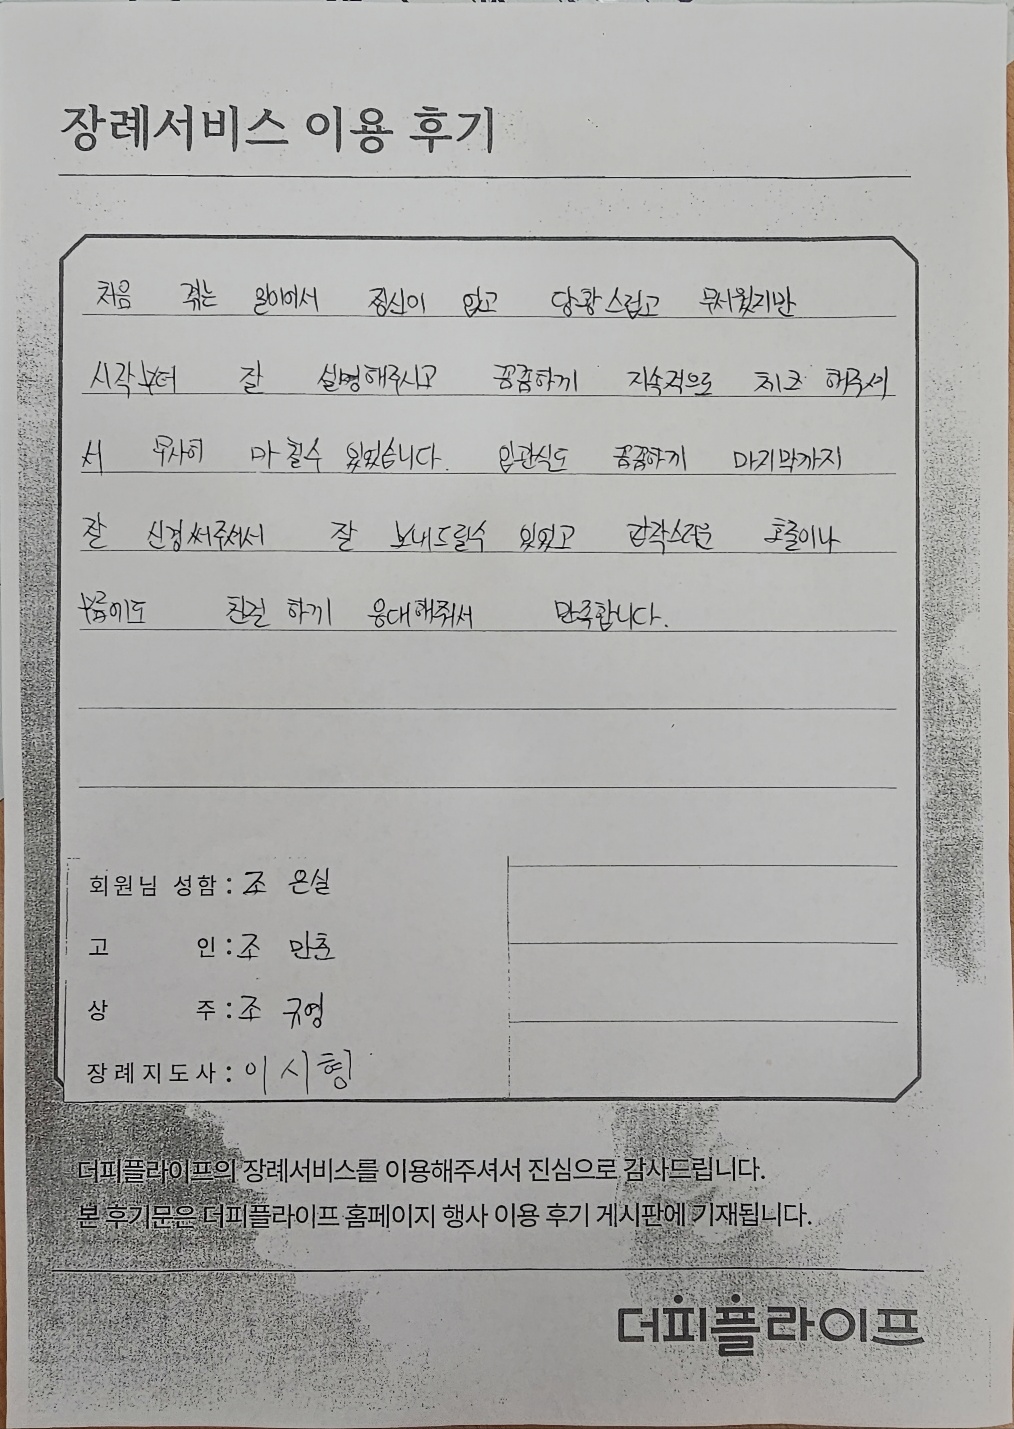 장례서비스 이용 후기
처음 겪는 일이여서 정신이 없고 당황스럽고 무서웠지만
시작부터 잘 설명해주시고 꼼꼼하게 지속적으로 체크 해주셔
서 무사히 마칠수 있었습니다. 입관식도 꼼꼼하게 마지막까지
잘 신경써주셔서 잘 보내드릴수 있었고 갑작스러운 호출이나
부름에도 친절 하게 응대해줘서 만족합니다.
회원님 성함 : 조 은실
고 인 : 조 만춘
상 주 : 조 규영
장례지도사 : 이 시형
더피플라이프의 장례서비스를 이용해주셔서 진심으로 감사드립니다.
본 후기문은 더피플라이프 홈페이지 행사 이용 후기 게시판에 기재됩니다.
더피플라이프